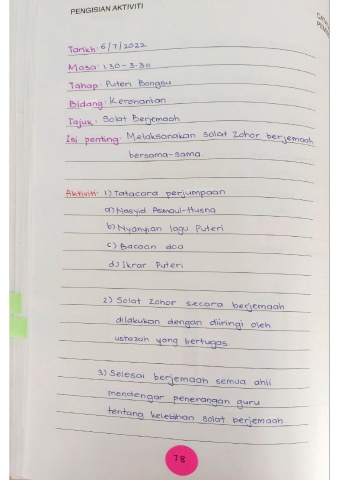 PENGISIAN AKTIVITI
Tarikh: 6/7/2022
Masa: 1.30 - 3.30
Tahap: Puteri Bongsu
Bidang: Kerohanian
Tajuk: Solat Berjemaah
Isi penting: Melaksanakan solat Zohor berjemaah
bersama-sama.
Aktiviti: 1) Tatacara perjumpaan
a) Nasyid Asmaul-Husna
b) Nyanyian lagu Puteri
c) Bacaan doa
d) Ikrar Puteri
2) Solat Zohor secara berjemaah
dilakukan dengan diiringi oleh
ustazah yang bertugas.
3) Selesai berjemaah semua ahli
mendengar penerangan guru
tentang kelebihan solat berjemaah.
78